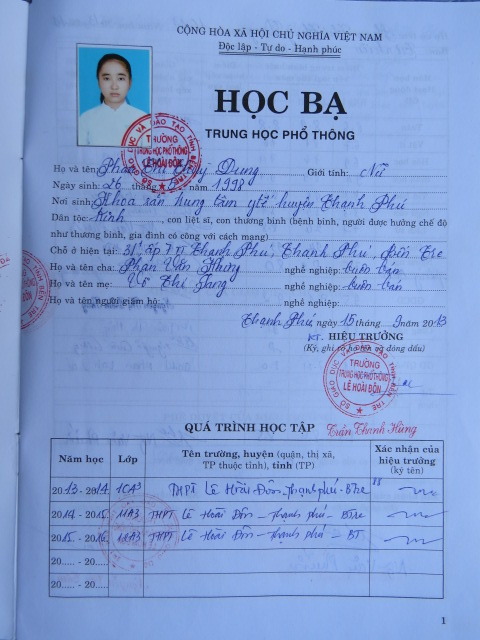 CỘNG HÒA XÃ HỘI CHỦ NGHĨA VIỆT NAM
Độc lập - Tự do - Hạnh phúc
HỌC BẠ
TRUNG HỌC PHỔ THÔNG
SỞ GIÁO DỤC VÀ ĐÀO TẠO TỈNH BẾN TRE
TRƯỜNG
TRUNG HỌC PHỔ THÔNG
LÊ HOÀI ĐÔN
Họ và tên: Phan Thị Dung Giới tính: Nữ
Ngày sinh: 26 tháng năm 1998
Nơi sinh: Khoa sản trung tâm y tế huyện Thạnh Phú
Dân tộc: Kinh, con liệt sĩ, con thương binh (bệnh binh, người được hưởng chế độ
như thương binh, gia đình có công với cách mạng)
Chỗ ở hiện tại: 31, ấp 7 TT Thạnh Phú, Thạnh Phú, Bến Tre
Họ và tên cha: Phan Văn nghề nghiệp: buôn bán
Họ và tên mẹ: Võ Thị nghề nghiệp: buôn bán
Họ và tên người giám hộ: nghề nghiệp:
Thạnh Phú, ngày 15 tháng 9 năm 2013
KT. HIỆU TRƯỞNG
(Ký, ghi rõ họ tên và đóng dấu)
SỞ GIÁO DỤC VÀ ĐÀO TẠO TỈNH BẾN TRE
TRƯỜNG
TRUNG HỌC PHỔ THÔNG
LÊ HOÀI ĐÔN
QUÁ TRÌNH HỌC TẬP Trần Thanh Hùng
Năm học Lớp Tên trường, huyện (quận, thị xã, TP thuộc tỉnh), tỉnh (TP) Xác nhận của hiệu trưởng (ký tên)
2013 - 2014 10A3 THPT Lê Hoài Đôn - Thạnh phú - BTre
2014 - 2015 11A3 THPT Lê Hoài Đôn - Thạnh phú - BTre
2015 - 2016 12A3 THPT Lê Hoài Đôn - Thạnh phú - BT
20..... - 20.....
20..... - 20.....
1